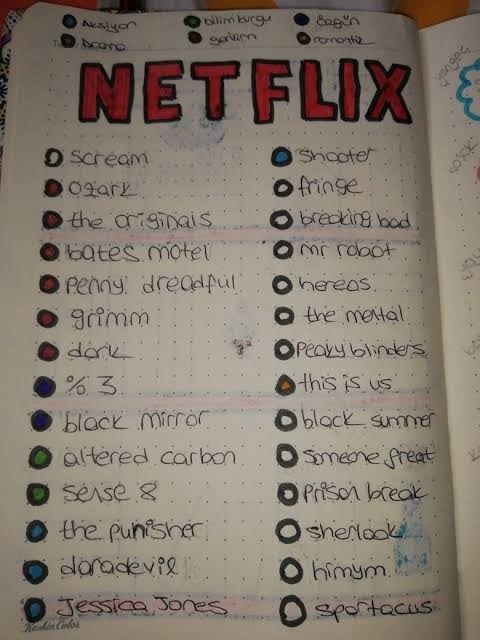 Aksiyon
bilimkurgu
Drama
gerilim
romantik
NETFLIX
scream
ozark
the originals
bates motel
penny dreadful
grimm
dark
% 3
black mirror
altered carbon
sense 8
the punisher
daradevil
Jessica Jones
shooter
fringe
breaking bad
mr robot
hereos
the mental
Peaky blinders
this is us
black summer
someone great
prison break
sherlock
himym
spartacus
KeskinColor